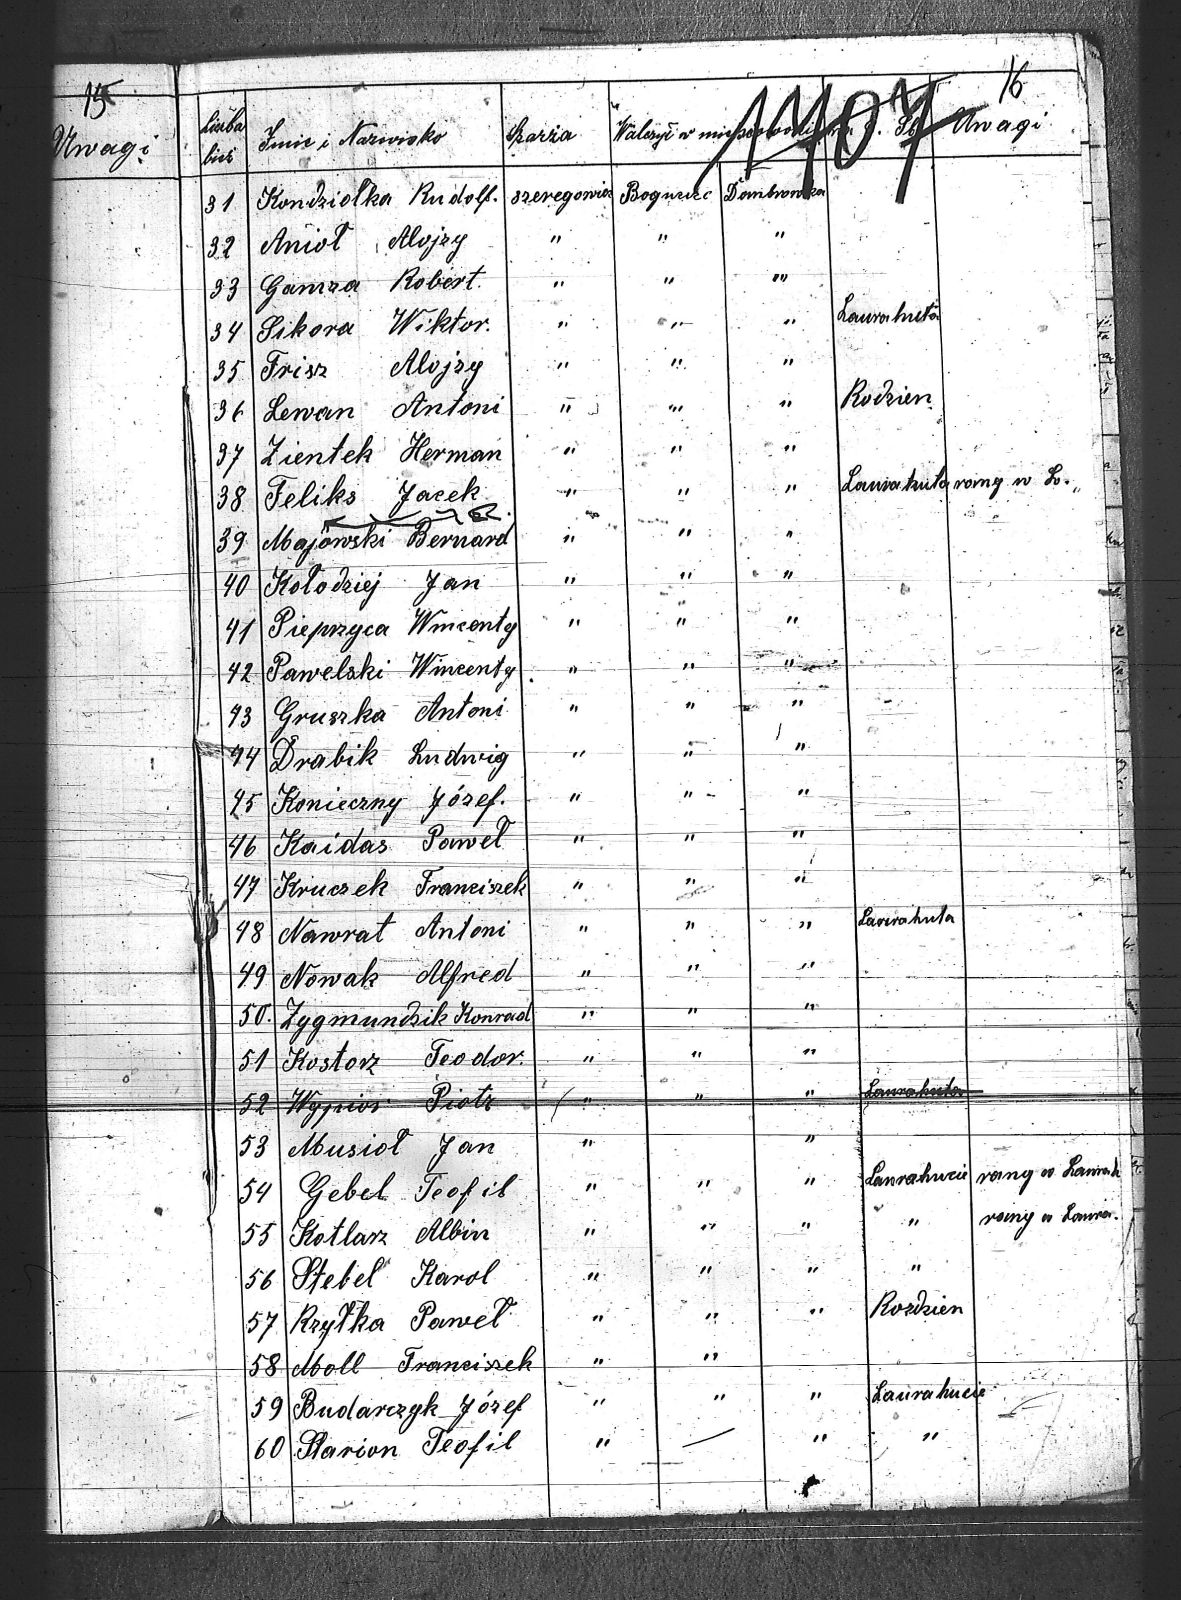 15
Uwagi
16
1407
Liczba bież Imię i Nazwisko Szarża Walczył w Uwagi
31 Kondziolka Rudolf. szeregowiec Bogucice Dombrowka
32 Anioł Alojzy " " "
33 Gamza Robert. " " "
34 Sikora Wiktor. " " " Laurahuta
35 Frisz Alojzy " " "
36 Lewan Antoni " " " Rodzien
37 Zientek Herman " " "
38 Feliks Jacek " " " Laurahuta rany w L.
39 Majowski Bernard " " "
40 Kołodziej Jan " " "
41 Pieprzyca Wincenty " " "
42 Pawelski Wincenty " " "
43 Gruszka Antoni " " "
44 Drabik Ludwig " " "
45 Konieczny Józef. " " "
46 Kaidas Paweł " " "
47 Kruczek Franciszek " " "
48 Nawrat Antoni " " " Laurahuta
49 Nowak Alfred " " "
50. Zygmundzik Konrad " " "
51 Kostorz Teodor. " " "
52 Wypior Piotr " " " Laurahuta
53 Musioł Jan " "
54 Gebel Teofil " " " Laurahucie rany w Laurah
55 Kotlarz Albin " " " " rany w Laura.
56 Stebel Karol " " " "
57 Rzytka Paweł " " " Rozdzien
58 Moll Franciszek " "
59 Budarczyk Józef " " " Laurahucie
60 Slarion Teofil " — " "